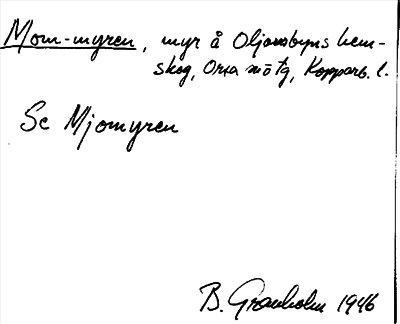 Mom-myren, myr å Oljonsbyns hem-
skog, Orsa sn o tg, Kopparb. l.
Se Mjomyren
B. Granholm 1946